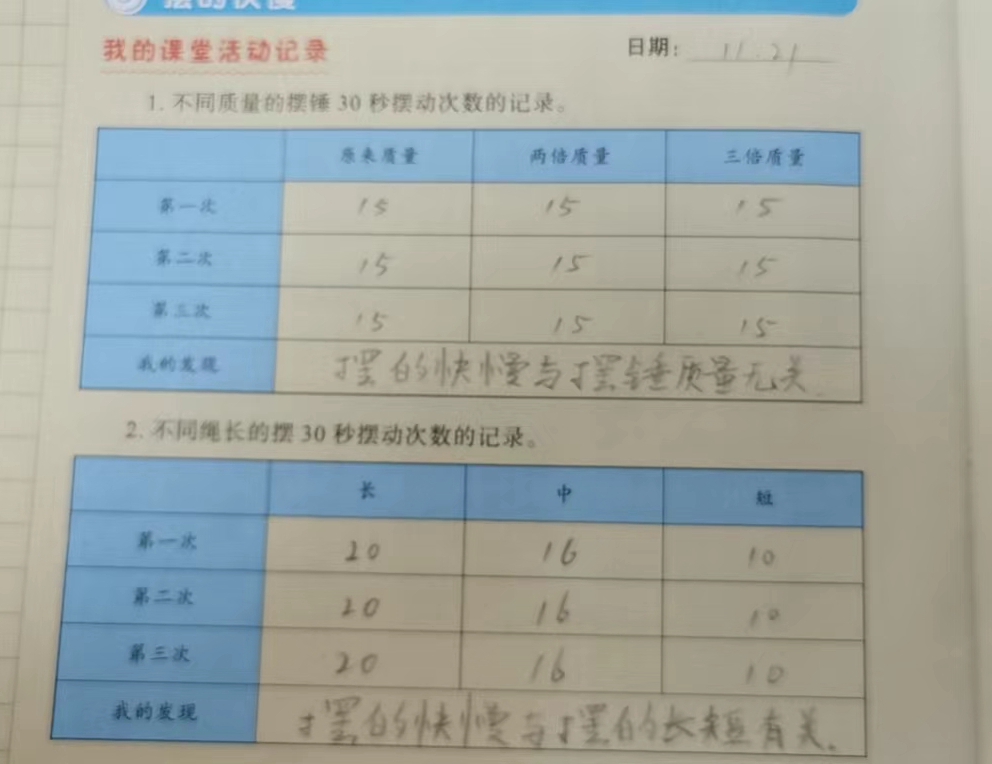 摆的快慢
我的课堂活动记录 日期: 11.21
1. 不同质量的摆锤 30 秒摆动次数的记录。
原来质量 两倍质量 三倍质量
第一次 15 15 15
第二次 15 15 15
第三次 15 15 15
我的发现 摆的快慢与摆锤质量无关.
2. 不同绳长的摆 30 秒摆动次数的记录。
长 中 短
第一次 20 16 10
第二次 20 16 10
第三次 20 16 10
我的发现 摆的快慢与摆的长短有关.